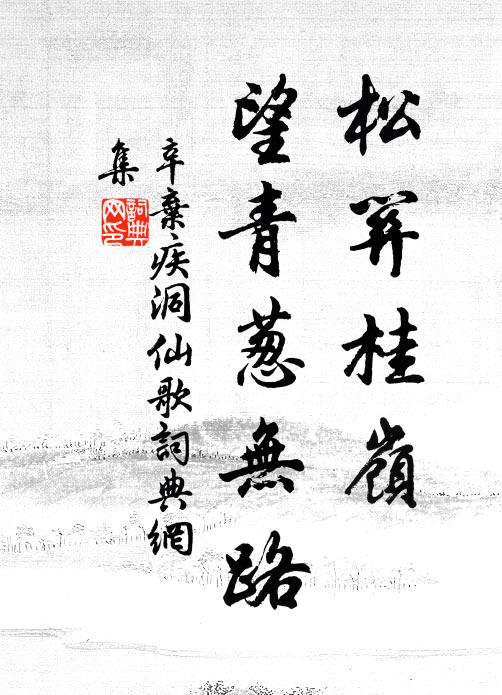 松關桂嶺
望青葱無路
辛棄疾洞仙歌詞典網
集
詞典
网印